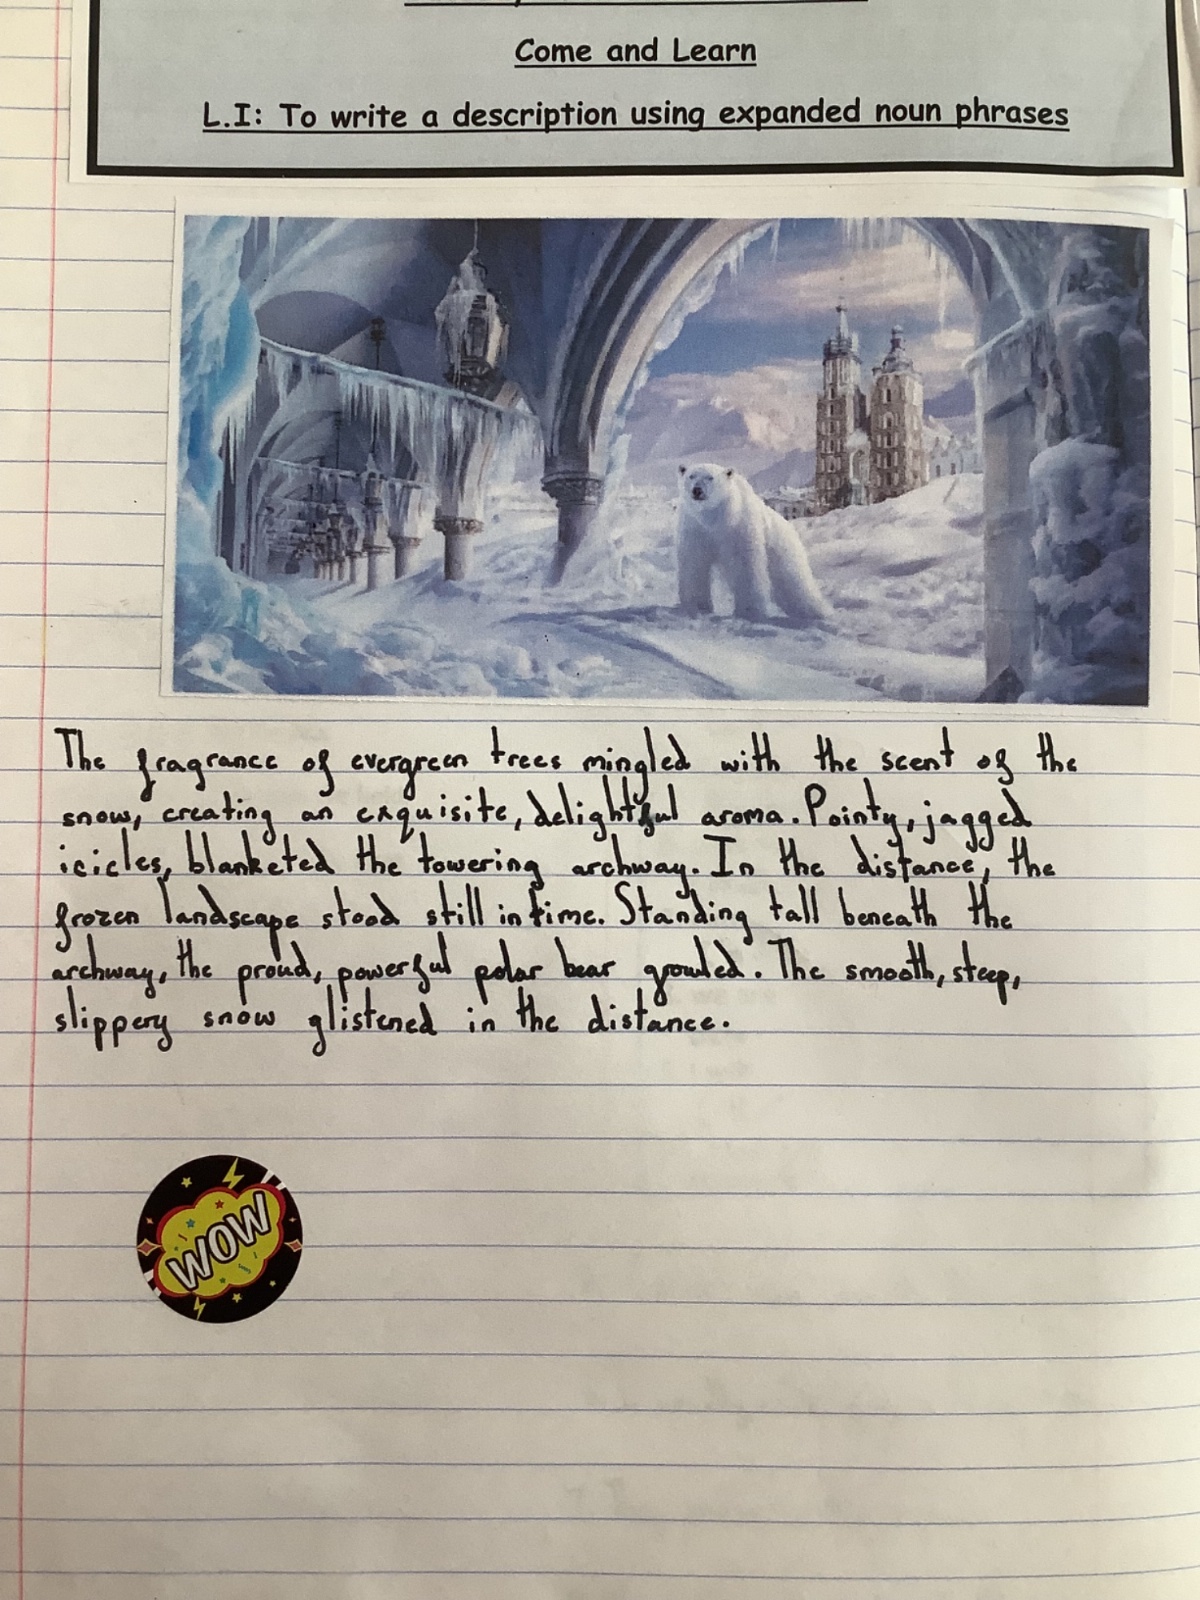 Come and Learn
L.I: To write a description using expanded noun phrases
The fragrance of evergreen trees mingled with the scent of the
snow, creating an exquisite, delightful aroma. Pointy, jagged
icicles, blanketed the towering archway. In the distance, the
frozen landscape stood still in time. Standing tall beneath the
archway, the proud, powerful polar bear growled. The smooth, steep,
slippery snow glistened in the distance.
WOW